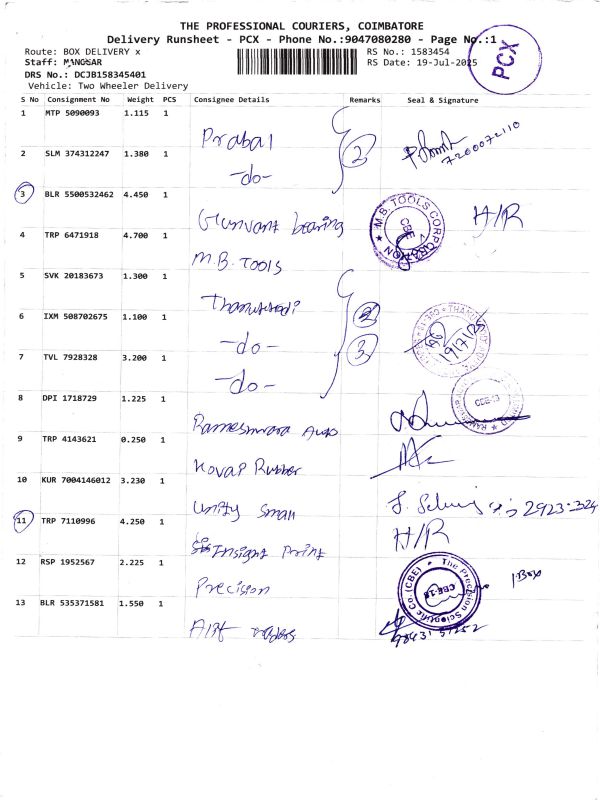 THE PROFESSIONAL COURIERS, COIMBATORE
Delivery Runsheet - PCX - Phone No.:9047080280 - Page No.:1
Route: BOX DELIVERY x
RS No.: 1583454
Staff: MANOSAR
RS Date: 19-Jul-2025
DRS No.: DCJB158345401
Vehicle: Two Wheeler Delivery
PCX
S No Consignment No Weight PCS Consignee Details Remarks Seal & Signature
1 MTP 5090093 1.115 1 Prabal 7200072110
2 SLM 374312247 1.380 1 -do- 2
3 BLR 5500532462 4.450 1 Gunvant bearing H/R
4 TRP 6471918 4.700 1 M.B. TOOLS M.B. TOOLS CORPORATION CBE
5 SVK 20183673 1.300 1
6 IXM 508702675 1.100 1 -do- 19/7/25
7 TVL 7928328 3.200 1 -do- 3
8 DPI 1718729 1.225 1 CBE-13
9 TRP 4143621 0.250 1 Rubber
10 KUR 7004146012 3.230 1 Unity Small
11 TRP 7110996 4.250 1 Insight Print H/R
12 RSP 1952567 2.225 1 Precision The Precision Scientific Co (CBE) 1Box
13 BLR 535371581 1.550 1